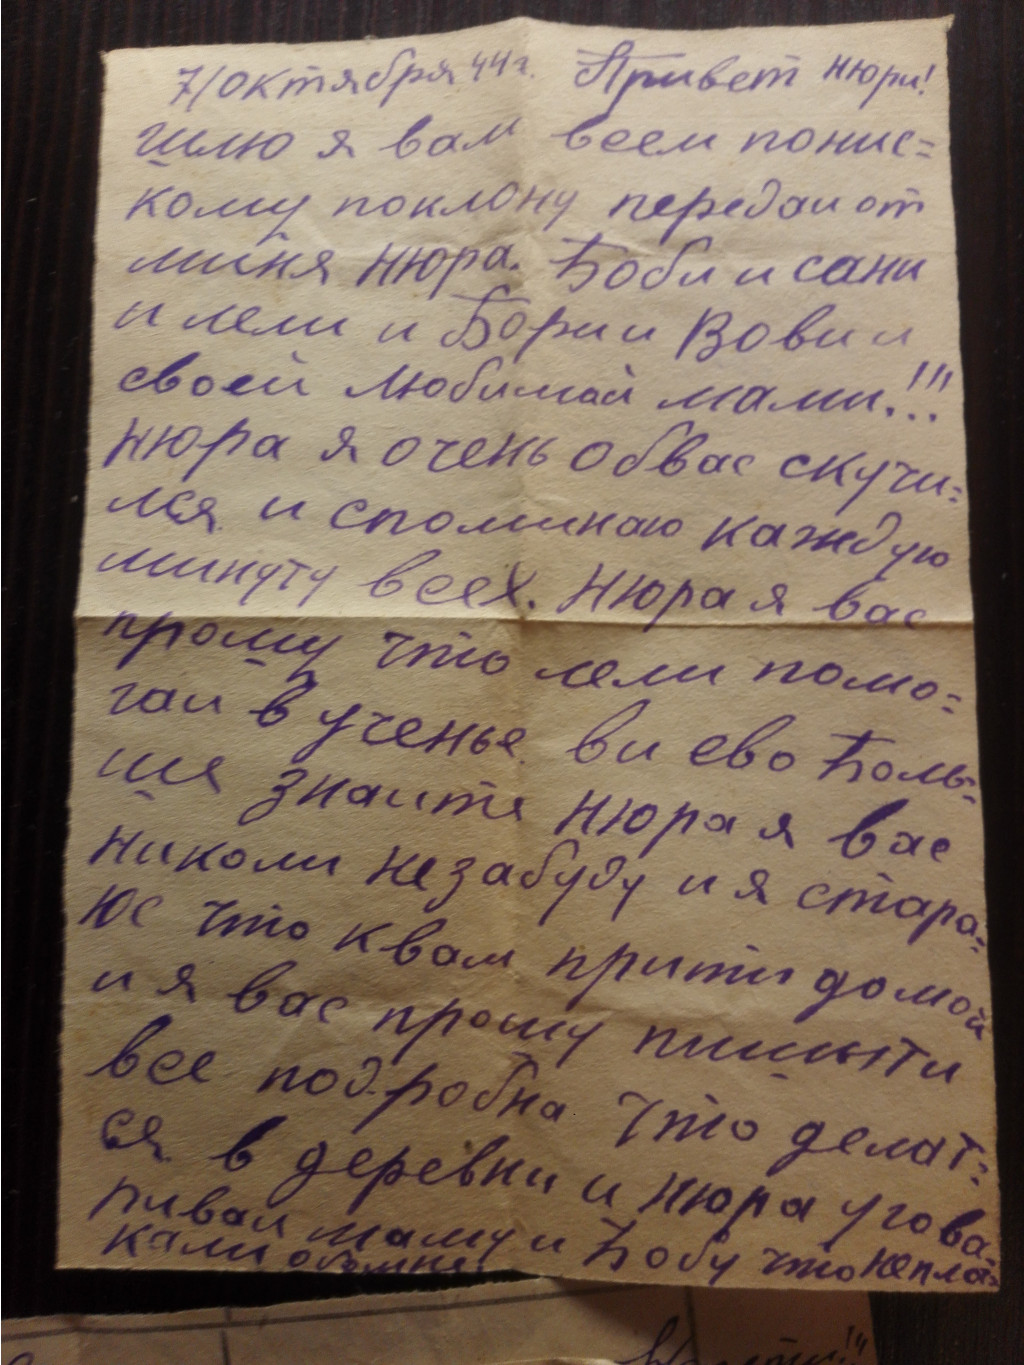 7/октября 44 г. Привет нюри!
шлю я вам всем понис=
кому поклону передаи от
миня нюра. Боби и сани
и лели и Бори и Вови и
своей любимай мами.!!!
нюра я очень об вас скучи=
лся и споминаю каждую
минуту всех. нюра я вас
прошу что лели помо=
гаи в ученье ви ево боль=
ше знаите нюра я вас
николи не забуду и я стара=
юс что к вам прити домой
и я вас прошу пишыти
все подробна что делат=
ся в деревни и нюра угова=
ривай маму и Бобу что не пла=
кали обомне